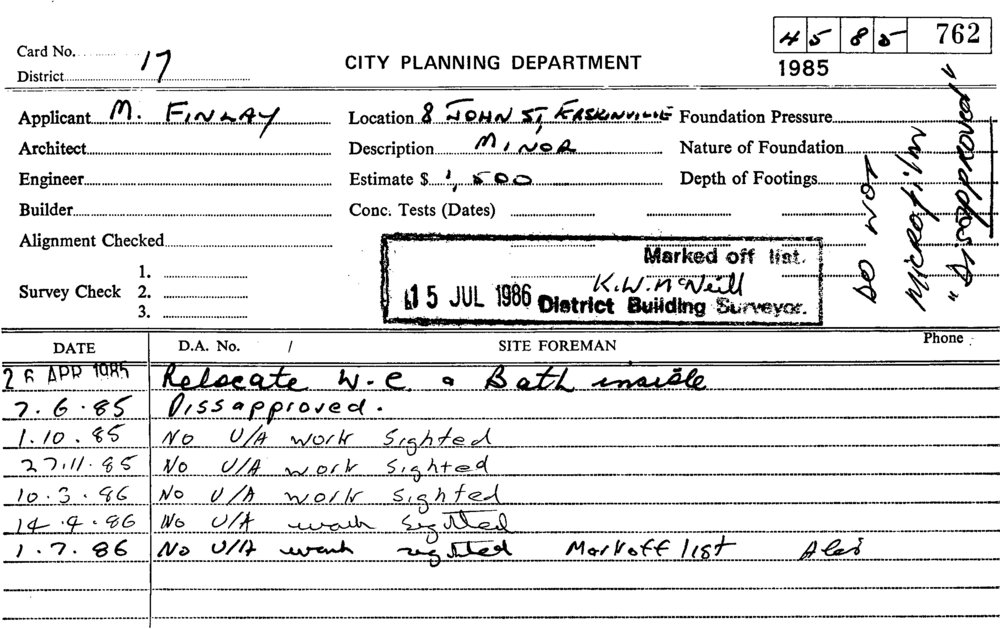 45 85 762
Card No. 17
CITY PLANNING DEPARTMENT
1985
District
Applicant M. FINLAY Location 8 JOHN ST, ERSKINVILLE Foundation Pressure
Architect Description MINOR Nature of Foundation
Engineer Estimate $ 1,500 Depth of Footings
Builder Conc. Tests (Dates)
Alignment Checked
DO NOT
MICROfilm
"Disapproved"
Survey Check 1.
2.
3.
Marked off list.
K.W. McNeill
15 JUL 1986 District Building Surveyor.
DATE D.A. No. / SITE FOREMAN Phone
26 APR 1985 Relocate W.C & Bath inside
7.6.85 Dissapproved.
1.10.85 No U/A work Sighted
27.11.85 No U/A work Sighted
10.3.86 No U/A work Sighted
14.4.86 No U/A work Sighted
1.7.86 No U/A work sighted Mark off list